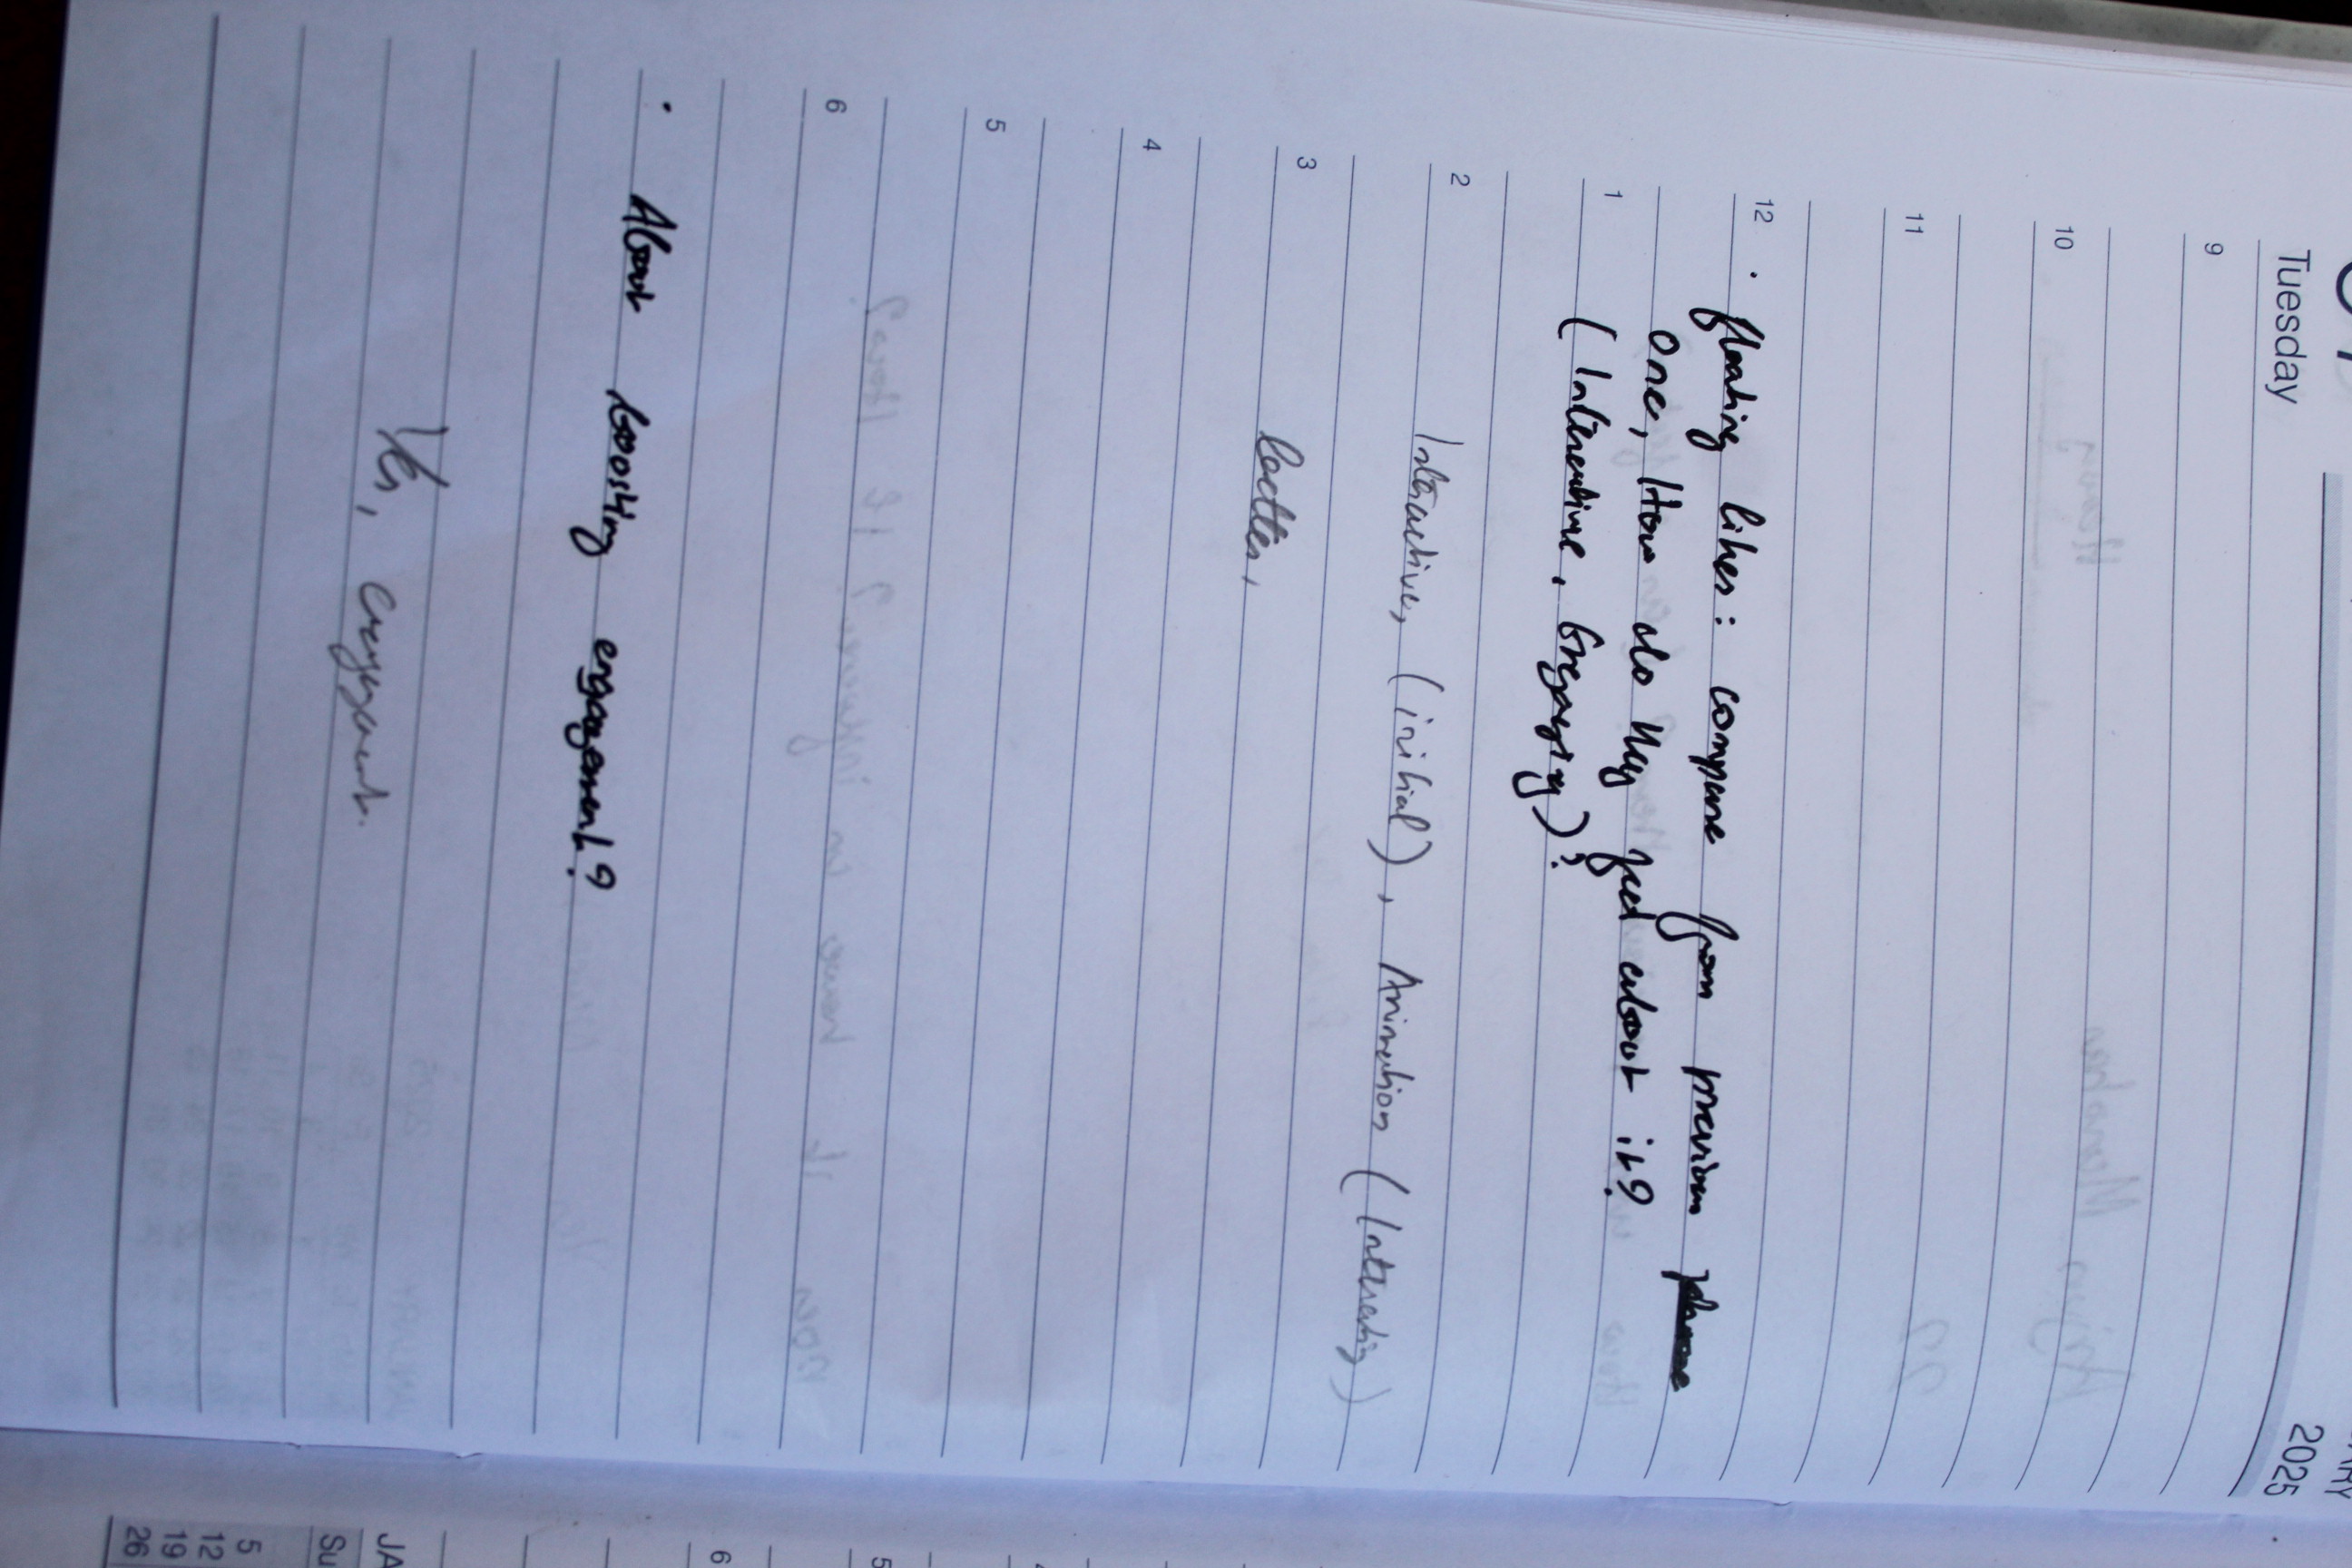 Tuesday
2025
9
10
11
12 · floating likes: compare from previous
one, How do they feel about it?
1 (Interactive, Engaging)?
2 Interactive, (initial), Animation (Interacting)
3 better,
4
5
6
· About boosting engagement?
Yes, engagement.
5
6
JA
Su
5
12
19
26